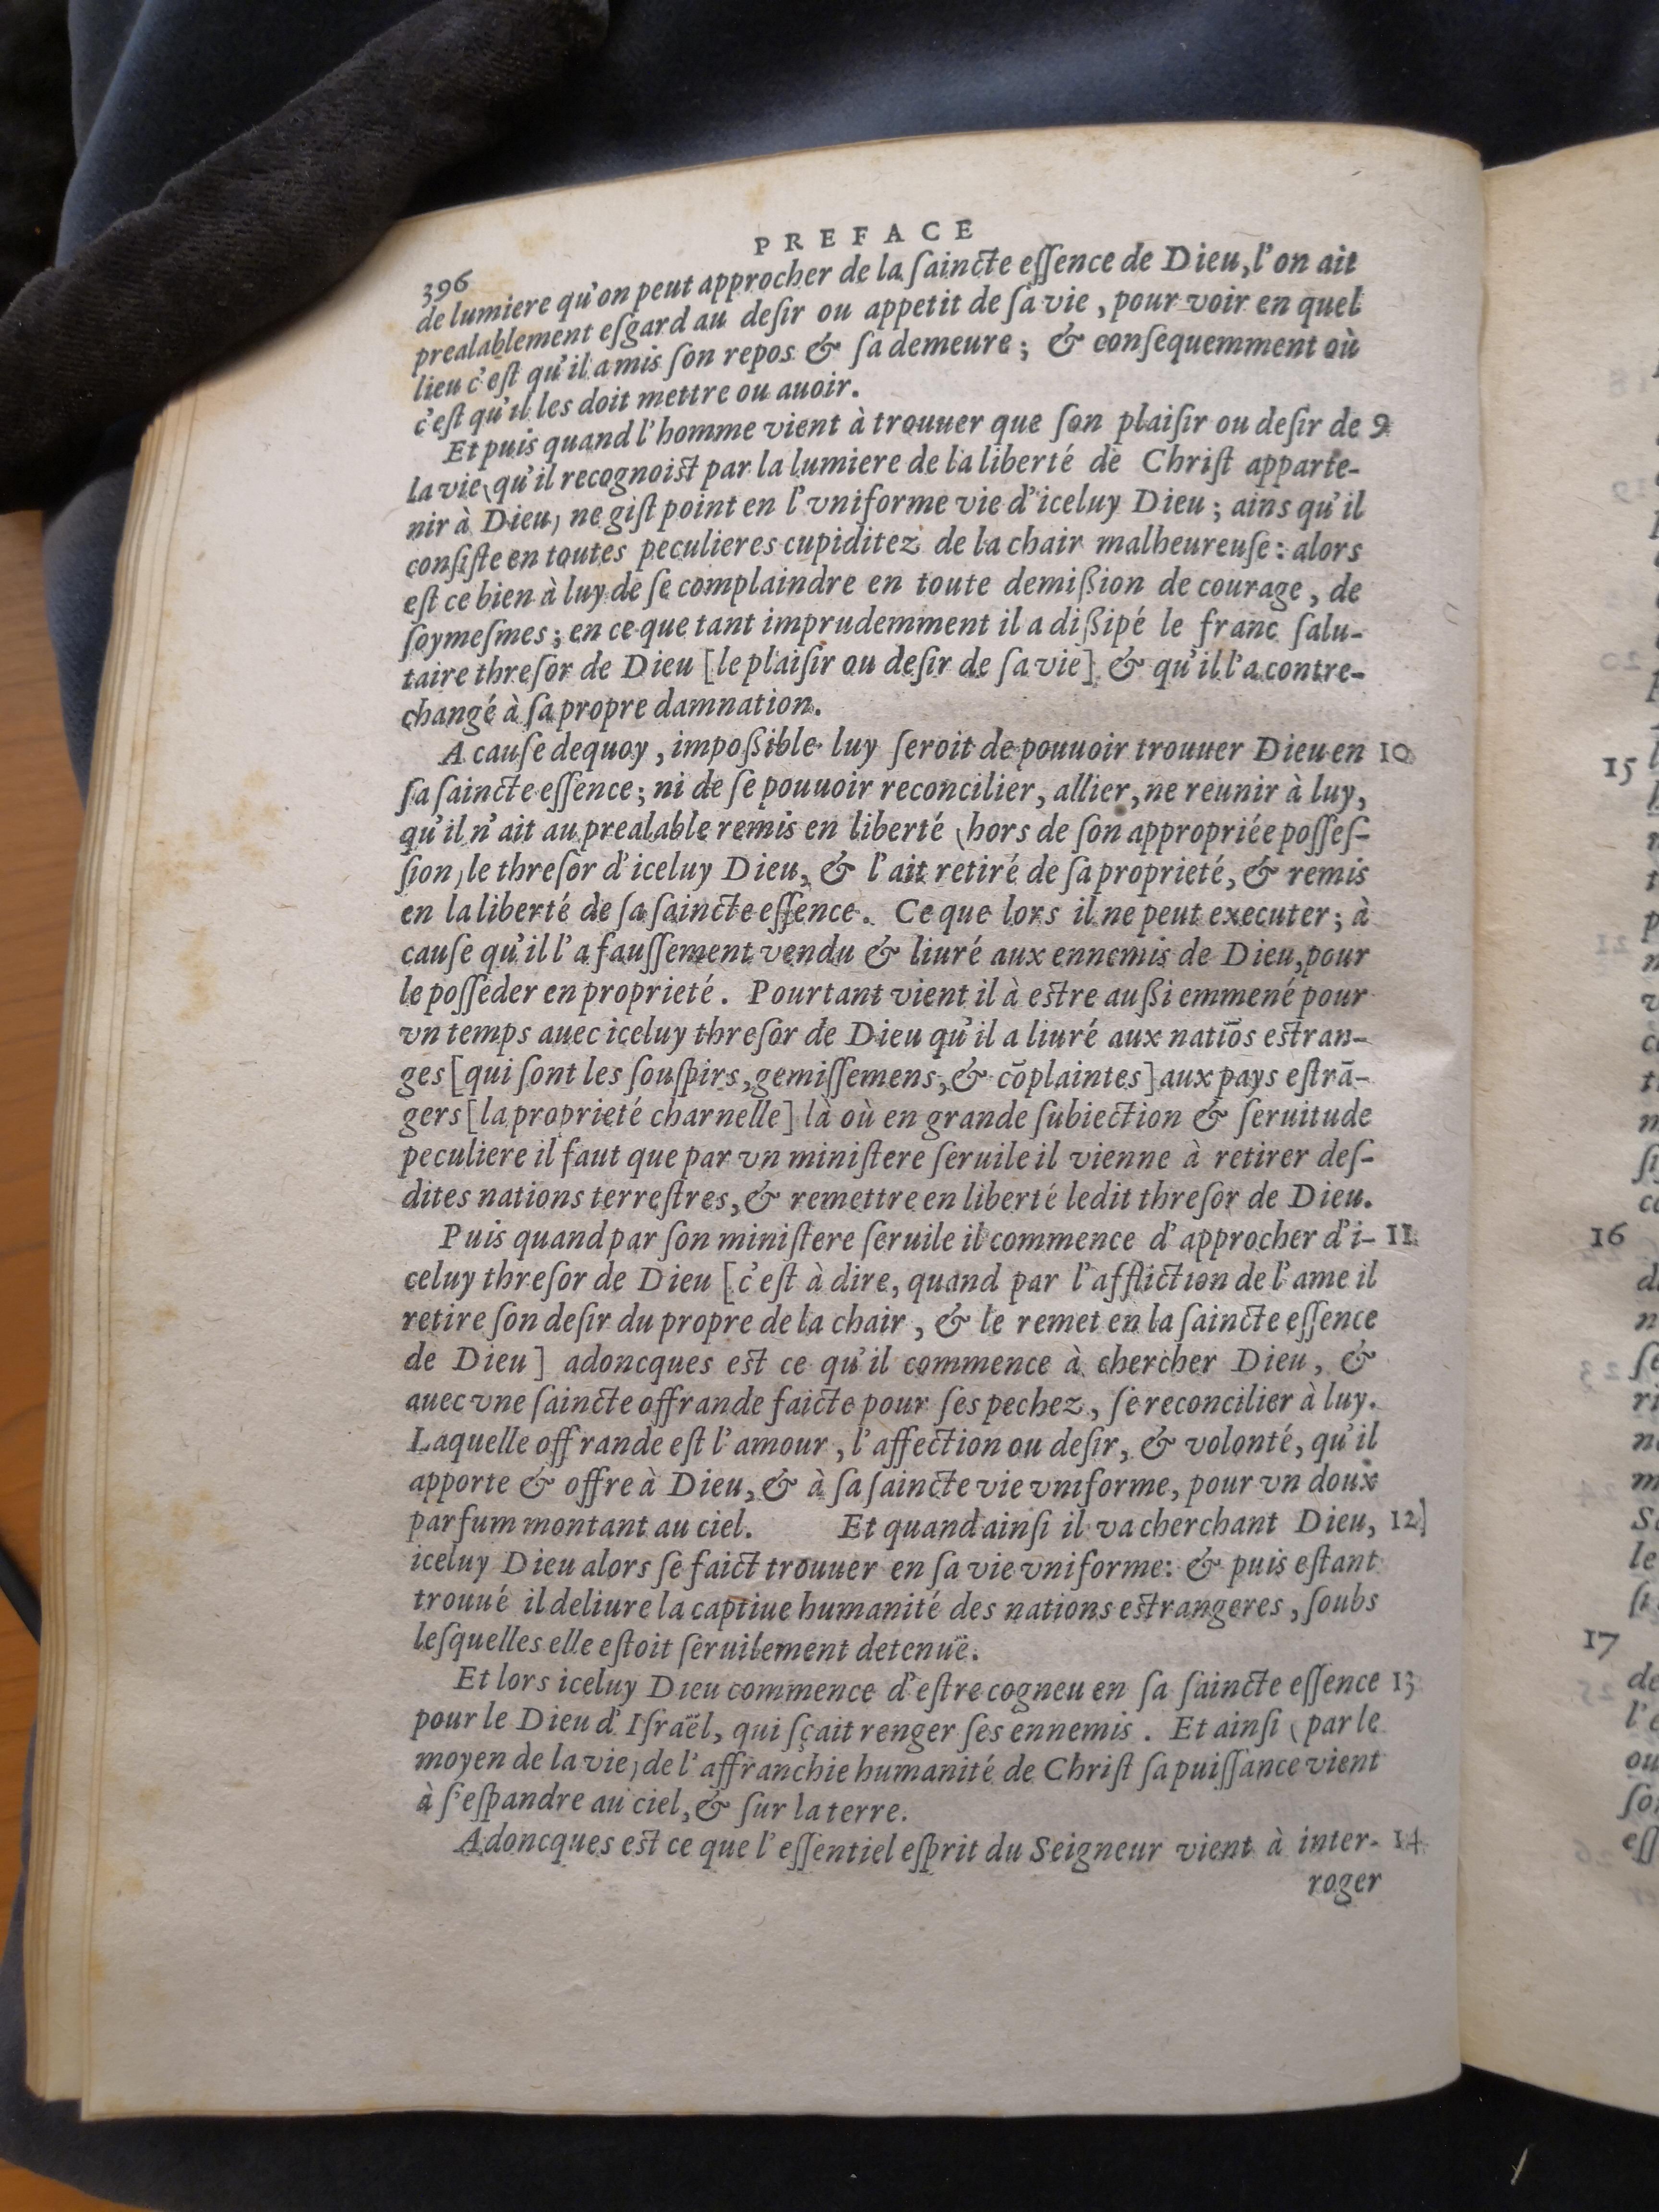 PREFACE
396
de lumiere qu'on peut approcher de la ſaincte eſſence de Dieu, l'on ait
prealablement eſgard au deſir ou appetit de ſa vie, pour voir en quel
lieu c'eſt qu'il a mis ſon repos & ſa demeure; & conſequemment où
c'eſt qu'il les doit mettre ou auoir.
Et puis quand l'homme vient à trouuer que ſon plaiſir ou deſir de 9
la vie (qu'il recognoiſt par la lumiere de la liberté de Chriſt apparte-
nir à Dieu) ne giſt point en l'vniforme vie d'iceluy Dieu; ains qu'il
conſiſte en toutes peculieres cupiditez de la chair malheureuſe: alors
eſt ce bien à luy de ſe complaindre en toute demiſsion de courage, de
ſoymeſmes; en ce que tant imprudemment il a diſsipé le franc ſalu-
taire threſor de Dieu [le plaiſir ou deſir de ſa vie] & qu'il l'a contre-
changé à ſa propre damnation.
A cauſe dequoy, impoſsible luy ſeroit de pouuoir trouuer Dieu en 10
ſa ſaincte eſſence; ni de ſe pouuoir reconcilier, allier, ne reunir à luy,
qu'il n'ait au prealable remis en liberté (hors de ſon appropriée poſſeſ-
ſion) le threſor d'iceluy Dieu, & l'ait retiré de ſa proprieté, & remis
en la liberté de ſa ſaincte eſſence. Ce que lors il ne peut executer; à
cauſe qu'il l'a fauſſement vendu & liuré aux ennemis de Dieu, pour
le poſſeder en proprieté. Pourtant vient il à eſtre auſsi emmené pour
vn temps auec iceluy threſor de Dieu qu'il a liuré aux natiõs eſtran-
ges [qui ſont les ſouſpirs, gemiſſemens, & cõplaintes] aux pays eſtrã-
gers [la proprieté charnelle] là où en grande ſubiection & ſeruitude
peculiere il faut que par vn miniſtere ſeruile il vienne à retirer deſ-
dites nations terreſtres, & remettre en liberté ledit threſor de Dieu.
Puis quand par ſon miniſtere ſeruile il commence d'approcher d'i- 11
celuy threſor de Dieu [c'eſt à dire, quand par l'affliction de l'ame il
retire ſon deſir du propre de la chair, & le remet en la ſaincte eſſence
de Dieu] adoncques eſt ce qu'il commence à chercher Dieu, &
auec vne ſaincte offrande faicte pour ſes pechez, ſe reconcilier à luy.
Laquelle offrande eſt l'amour, l'affection ou deſir, & volonté, qu'il
apporte & offre à Dieu, & à ſa ſaincte vie vniforme, pour vn doux
parfum montant au ciel. Et quand ainſi il va cherchant Dieu, 12]
iceluy Dieu alors ſe faict trouuer en ſa vie vniforme: & puis eſtant
trouué il deliure la captiue humanité des nations eſtrangeres, ſoubs
leſquelles elle eſtoit ſeruilement detenuë.
Et lors iceluy Dieu commence d'eſtre cogneu en ſa ſaincte eſſence 13
pour le Dieu d'Iſraël, qui ſçait renger ſes ennemis. Et ainſi (par le
moyen de la vie) de l'affranchie humanité de Chriſt ſa puiſſance vient
à ſ'eſpandre au ciel, & ſur la terre.
Adoncques eſt ce que l'eſſentiel eſprit du Seigneur vient à inter- 14
roger
15
16
17